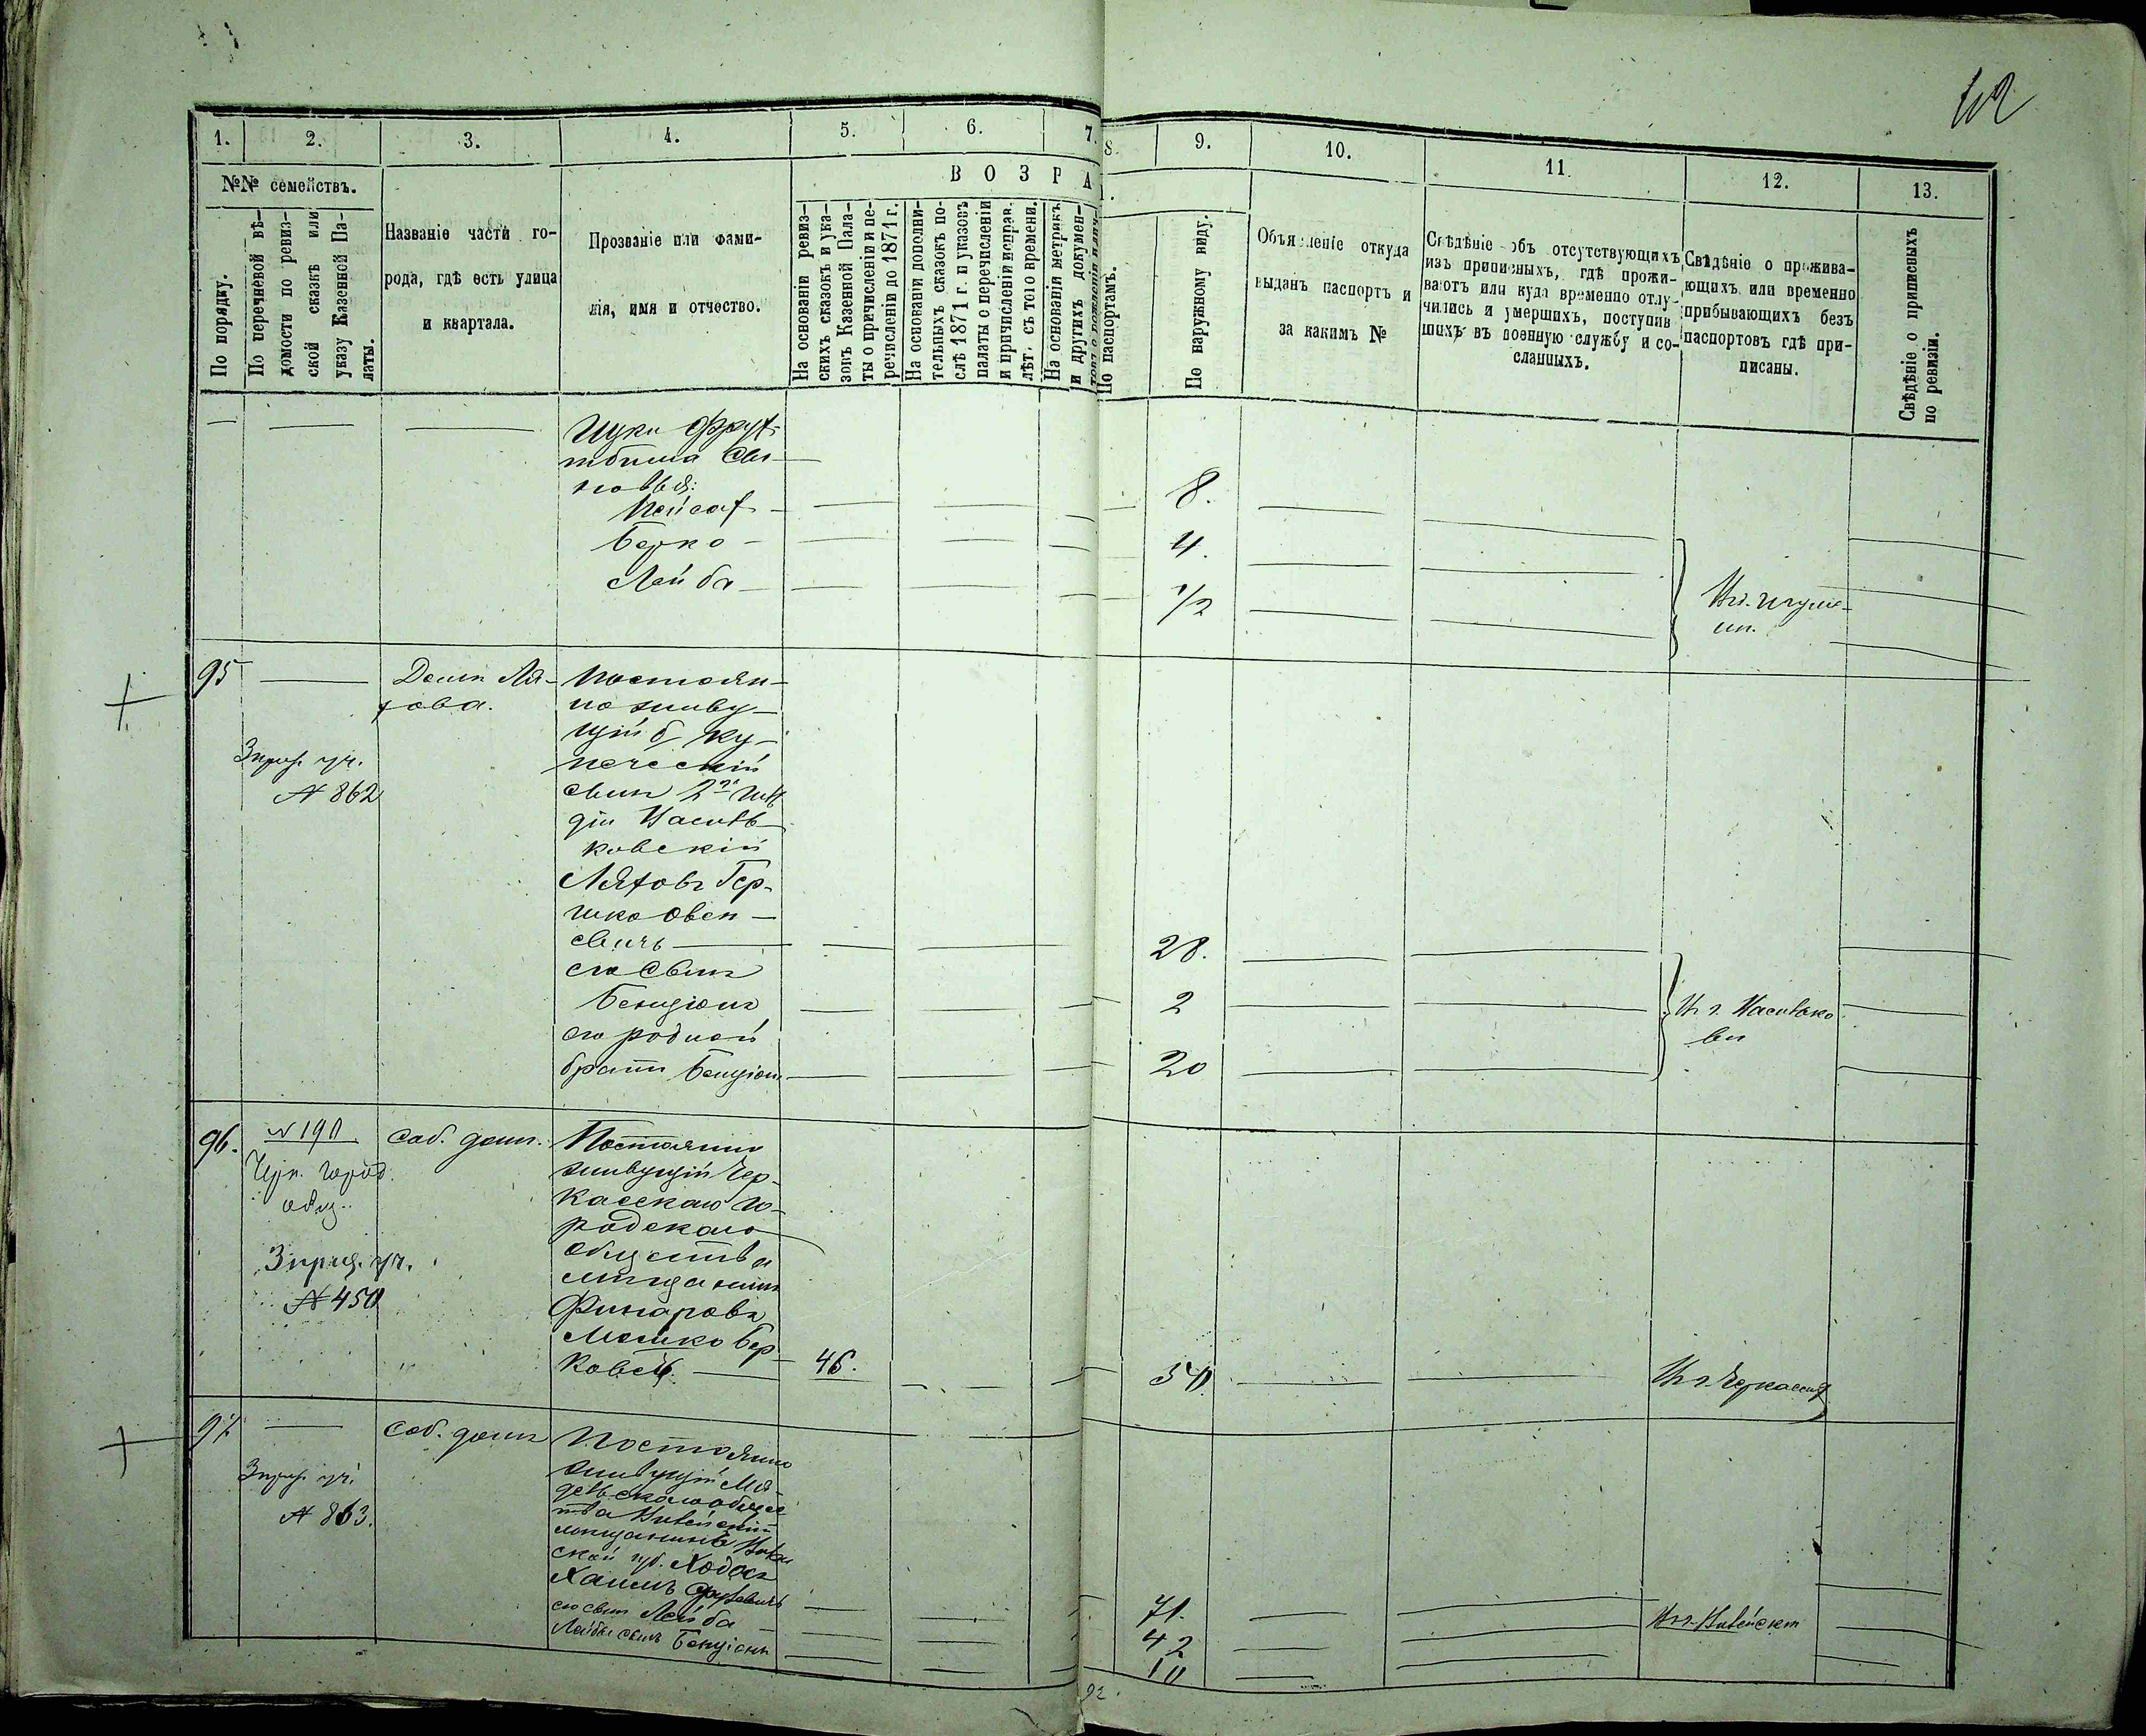 42
1.
2.
3.
4.
5.
6.
7.
8.
9.
10.
11.
12.
13.
№№ семействъ.
ВОЗРА
По порядку.
По перечневой вѣ-
домости по ревиз-
ской сказкѣ или
указу Казенной Па-
латы.
Названіе части го-
рода, гдѣ есть улица
и квартала.
Прозваніе или фами-
лія, имя и отчество.
На основаніи ревиз-
скихъ сказокъ и ука-
зовъ Казенной Пала-
ты о причисленіи и пе-
речисленіи до 1871 г.
На основаніи дополни-
тельныхъ сказокъ по-
слѣ 1871 г. и указовъ
палаты о перечисленіи
и причисленіи исправ.
лѣт. съ того времени.
На основаніи метрикъ
и другихъ докумен-
По паспортамъ.
По наружному виду.
Объявленіе откуда
выданъ паспортъ и
за какимъ №
Свѣдѣніе объ отсутствующихъ
изъ приписныхъ, гдѣ прожи-
ваютъ или куда временно отлу-
чились и умершихъ, поступив
шихъ въ военную службу и со-
сланныхъ.
Свѣдѣніе о прожива-
ющихъ или временно
прибывающихъ безъ
паспортовъ гдѣ при-
писаны.
Свѣдѣніе о приписныхъ
по ревизіи.
Ицки
сы-
новья:
Пейсах
8.
Берко
4.
Лейба
1/2
95
Домъ Ля-
хова.
Постоян-
но живу-
щій
ку-
печескій
сынъ 2й гиль
діи Василь-
ковскій
Ляховъ Гер-
шко Овсе-
евичъ
28.
его сынъ
Бенціонъ
2
Въ г. Василько
вѣ
его родной
братъ Бенціонъ
20
№ 862
96.
№ 190
Соб. домъ.
Черк. город.
общ.
№ 450
Постоянно
живущій Чер-
касскаго го-
родскаго
общества
мѣщанинъ
Финаровъ
Мошко Бер-
ковъ
46.
54
Въ г. Черкассахъ
97
Соб. домъ
№ 863.
Постоянно
живущій Мя-
дельскаго общес
тва Вилейскій
мѣщанинъ Вилен
ской губ. Ходосъ
Хаимъ
71.
его сынъ Лейба
42
Въ г. Вилейскѣ
Лейбы сынъ Бенціонъ
10
92